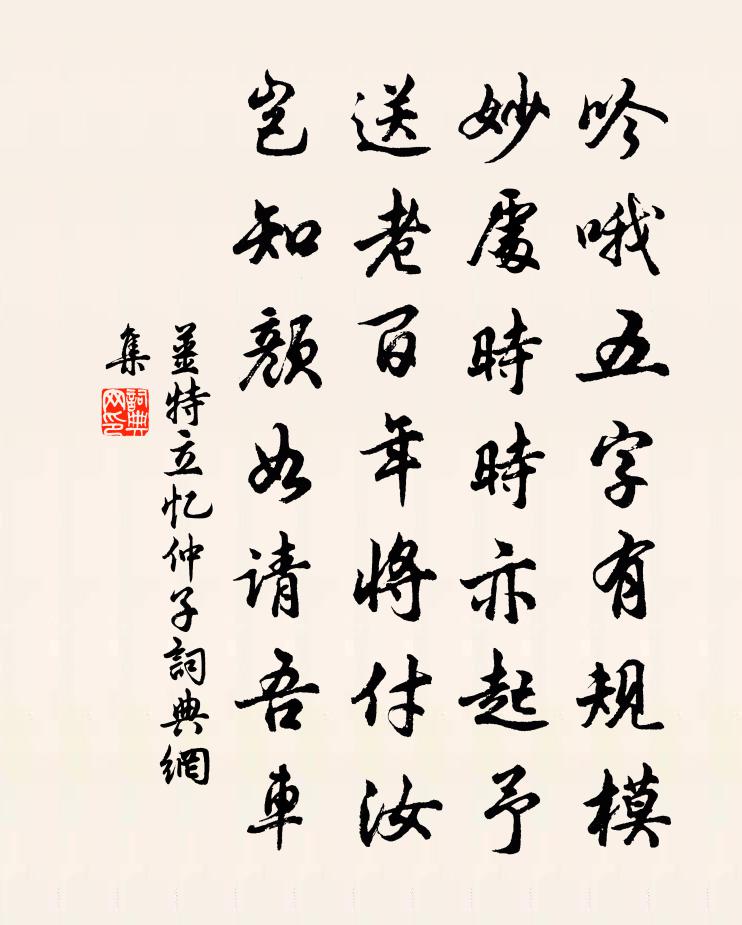 吟哦五字有規模
妙處時時亦起予
送老百年將付汝
豈知顏如请吾車
姜特立忆仲子詞典網
集
詞典网印